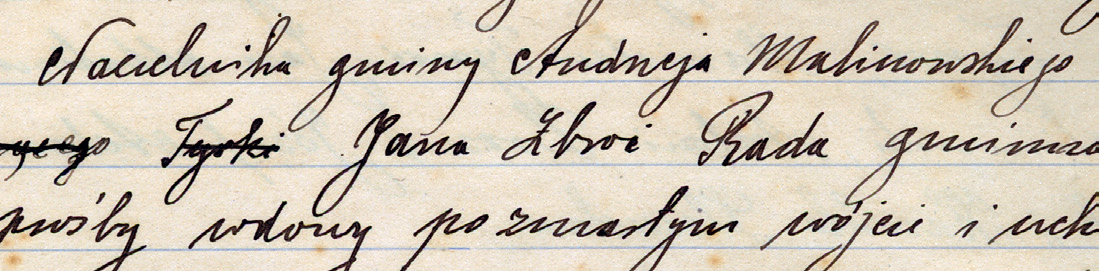 Naczelnika gminy Andrzeja Malinowskiego
Jana Zbroi Rada gminna
prośby wdowy po zmarłym wójcie i uch